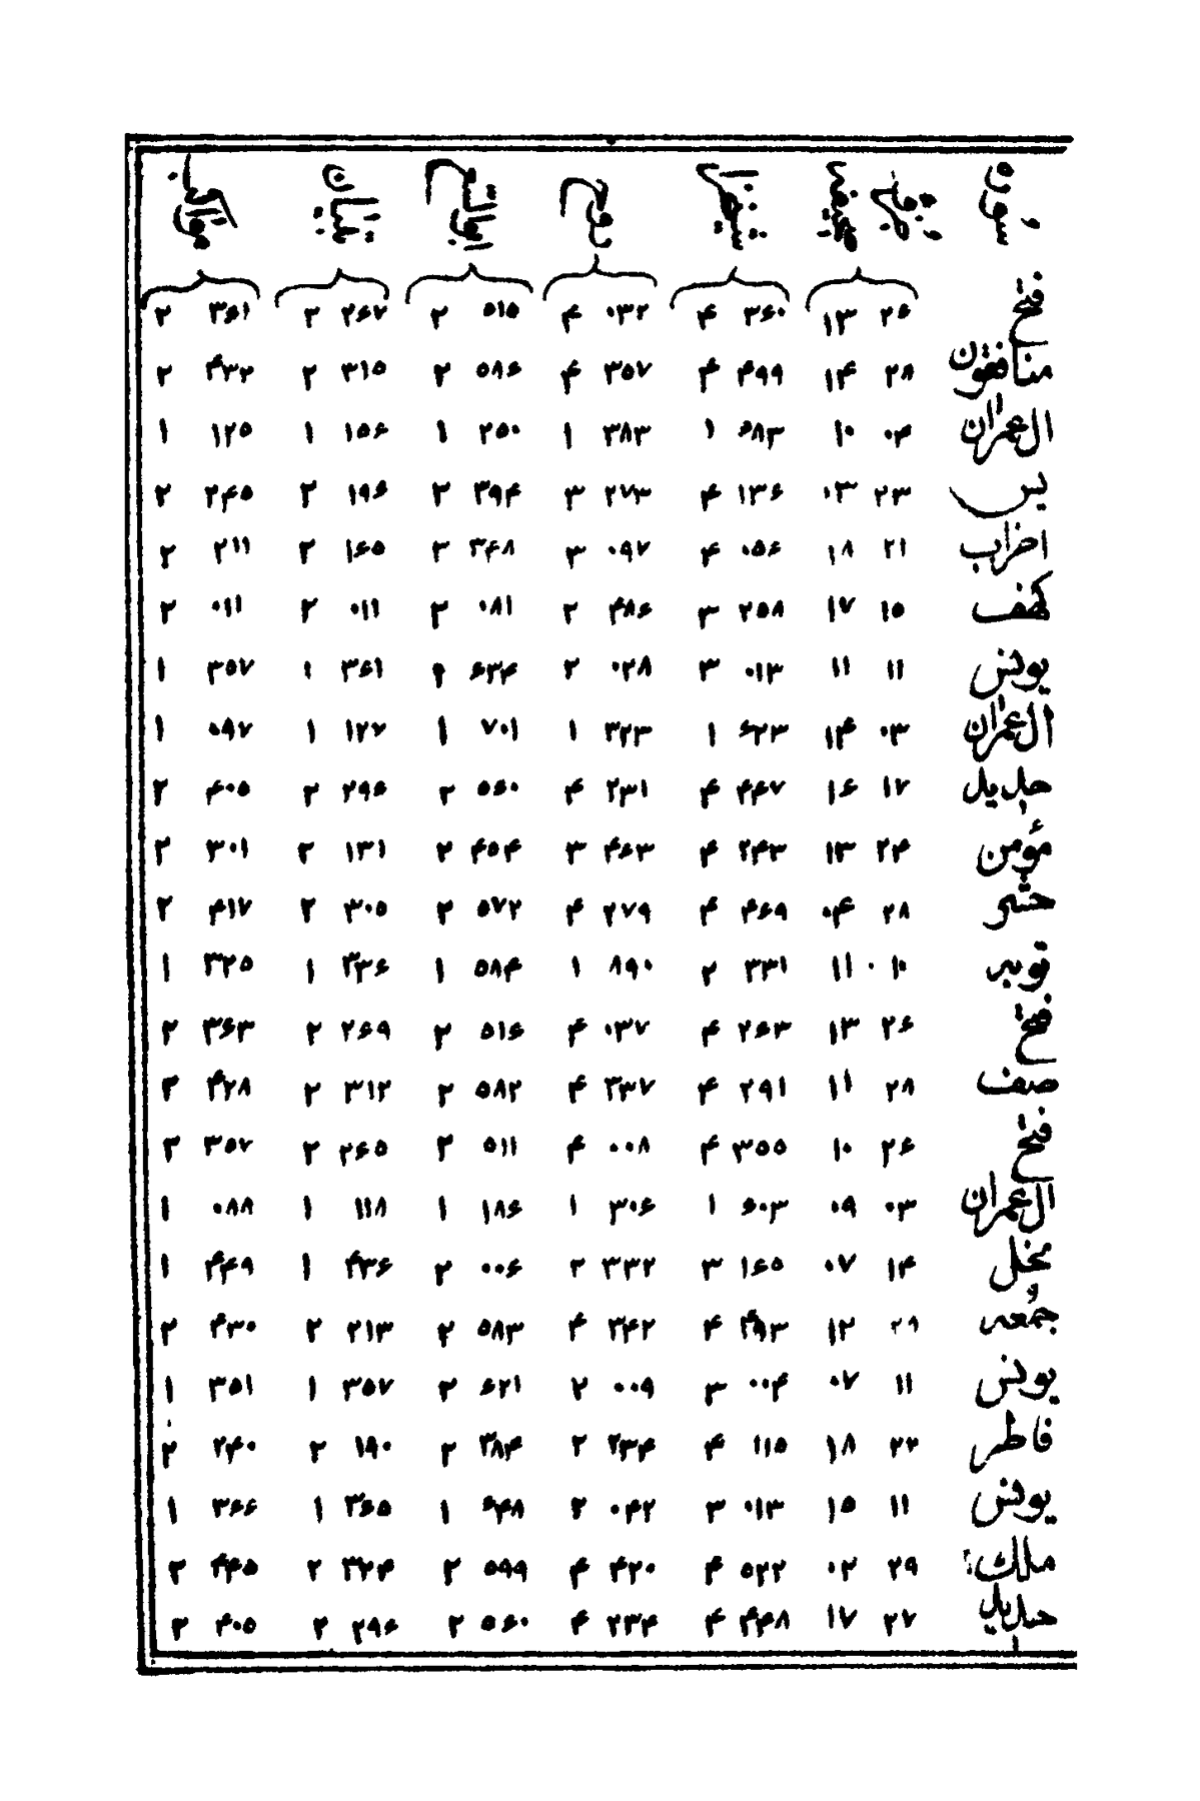 فتح ۲۶ ۱۳ ۳۶۰ ۴ ۰۳۲ ۴ ۵۱۵ ۲ ۲۶۷ ۲ ۳۶۱ ۲
منافقون ۲۸ ۱۴ ۴۹۹ ۴ ۳۵۷ ۴ ۵۸۶ ۲ ۳۱۵ ۲ ۴۳۲ ۲
ال عمران ۰۴ ۱۰ ۶۸۳ ۱ ۳۸۳ ۱ ۲۵۰ ۱ ۱۵۶ ۱ ۱۲۵ ۱
یس ۲۳ ۰۳ ۱۳۶ ۴ ۲۷۳ ۳ ۳۹۴ ۲ ۱۹۶ ۲ ۲۴۵ ۲
احزاب ۲۱ ۱۸ ۰۵۶ ۴ ۰۹۷ ۳ ۳۴۸ ۲ ۱۶۵ ۲ ۲۱۱ ۲
کهف ۱۵ ۱۷ ۲۵۸ ۳ ۴۸۶ ۲ ۰۸۱ ۲ ۰۱۱ ۲ ۰۱۱ ۲
یونس ۱۱ ۱۱ ۰۱۳ ۳ ۰۲۸ ۲ ۶۳۴ ۳۶۱ ۱ ۳۵۷ ۱
ال عمران ۰۳ ۱۴ ۶۲۳ ۱ ۳۲۳ ۱ ۷۰۱ ۱ ۱۲۷ ۱ ۰۹۷ ۱
حدید ۱۷ ۱۶ ۴۴۷ ۴ ۲۳۱ ۴ ۵۶۰ ۲ ۲۹۶ ۲ ۴۰۵ ۲
مؤمن ۲۴ ۱۳ ۲۴۳ ۴ ۴۶۳ ۳ ۴۵۴ ۲ ۱۳۱ ۲ ۳۰۱ ۲
حشر ۲۸ ۰۴ ۴۶۹ ۴ ۲۷۹ ۴ ۵۷۲ ۲ ۳۰۵ ۲ ۴۱۷ ۲
توبه ۱۰ ۱۱ ۳۳۱ ۲ ۸۹۰ ۱ ۵۸۴ ۱ ۳۳۶ ۱ ۳۲۵ ۱
فتح ۲۶ ۱۳ ۲۶۳ ۴ ۰۳۷ ۴ ۵۱۶ ۲ ۲۶۹ ۲ ۳۶۳ ۲
صف ۲۸ ۱۱ ۲۹۱ ۴ ۳۳۷ ۴ ۵۸۲ ۲ ۳۱۲ ۲ ۴۲۸ ۲
فتح ۲۶ ۱۰ ۳۵۵ ۴ ۰۰۸ ۴ ۵۱۱ ۲ ۲۶۵ ۲ ۳۵۷ ۲
ال عمران ۰۳ ۰۹ ۶۰۳ ۱ ۳۰۶ ۱ ۱۸۶ ۱ ۱۱۸ ۱ ۰۸۸ ۱
نحل ۱۴ ۰۷ ۱۶۵ ۳ ۳۳۲ ۲ ۰۰۶ ۲ ۴۳۶ ۱ ۴۴۹ ۱
جمعه ۲۸ ۱۲ ۴۹۳ ۴ ۳۴۲ ۴ ۵۸۳ ۲ ۲۱۳ ۲ ۴۳۰ ۲
یونس ۱۱ ۰۷ ۰۰۴ ۳ ۰۰۹ ۲ ۶۲۱ ۲ ۳۵۷ ۱ ۳۵۱ ۱
فاطر ۲۲ ۱۸ ۱۱۵ ۴ ۲۳۴ ۲ ۳۸۴ ۲ ۱۹۰ ۲ ۲۴۰ ۲
یونس ۱۱ ۱۵ ۰۱۳ ۳ ۰۴۲ ۲ ۶۴۸ ۱ ۳۶۵ ۱ ۳۶۶ ۱
ملک ۲۹ ۰۲ ۵۲۲ ۴ ۴۲۰ ۴ ۵۹۹ ۲ ۳۲۴ ۲ ۴۴۵ ۲
حدید ۲۷ ۱۷ ۴۴۸ ۴ ۲۳۴ ۴ ۵۶۰ ۲ ۲۹۶ ۲ ۴۰۵ ۲